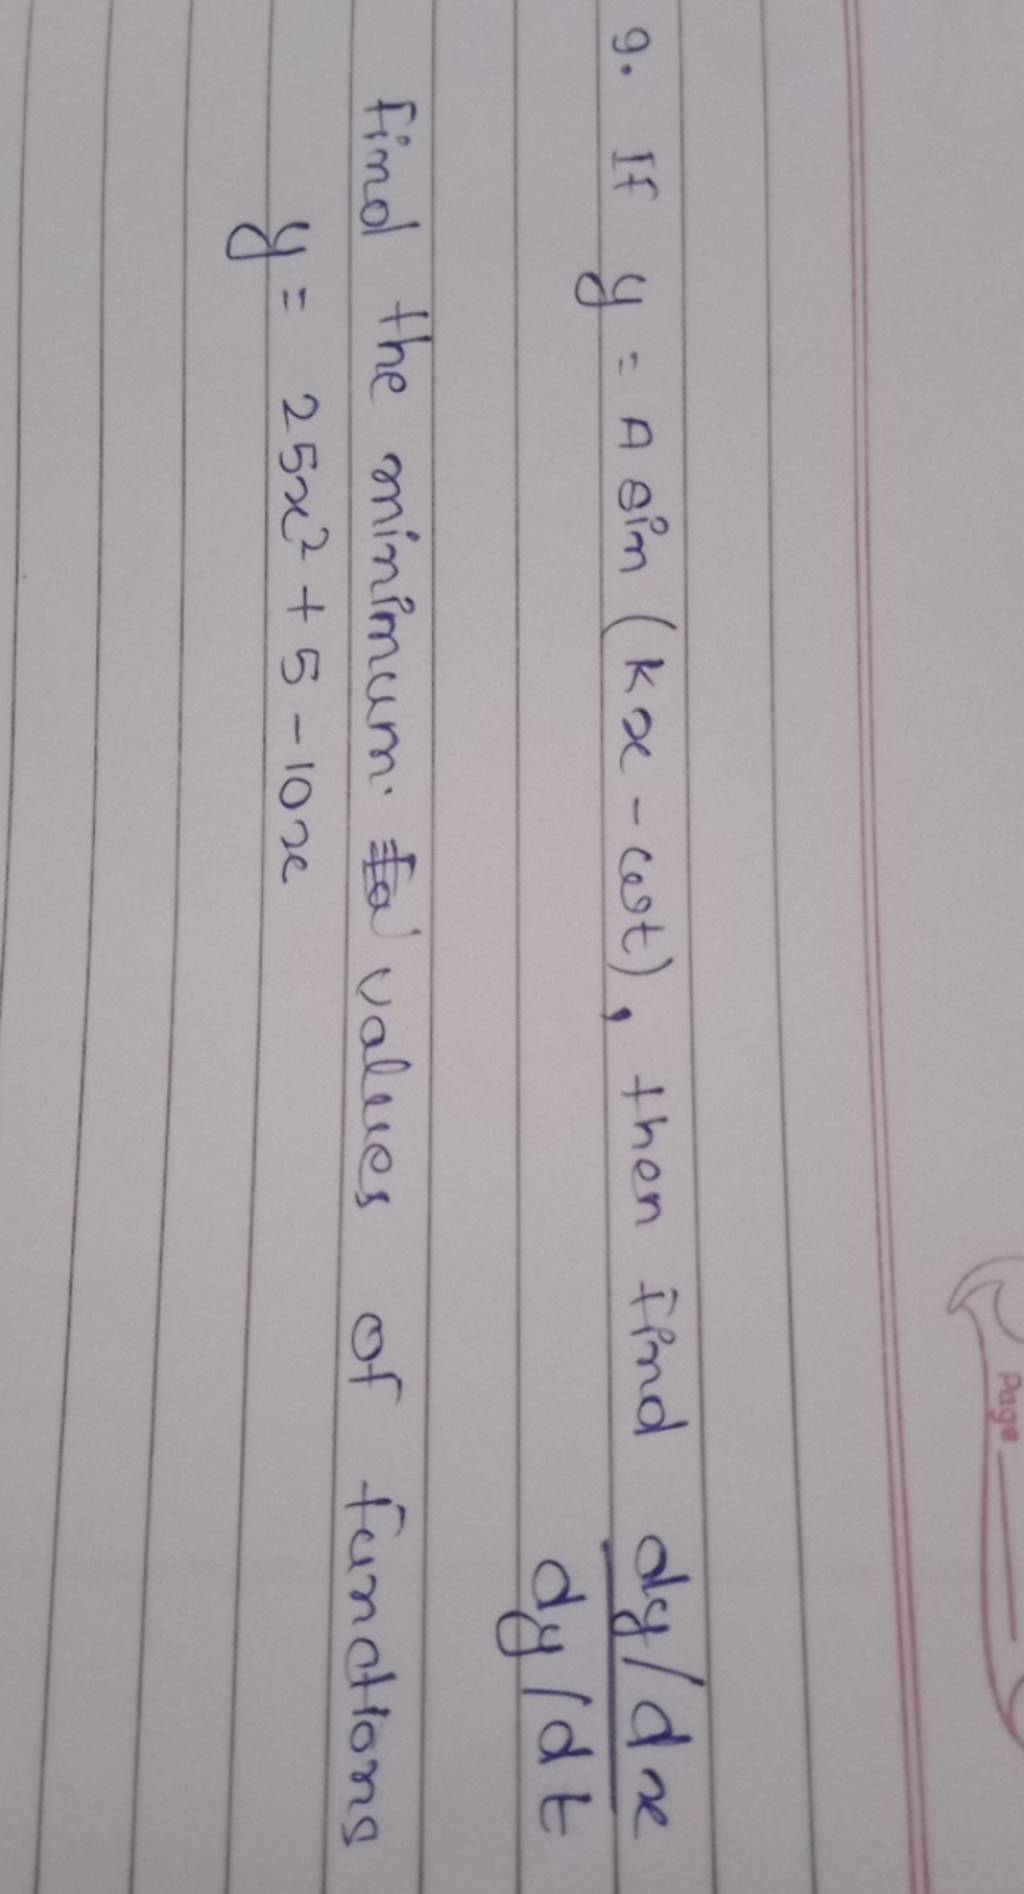 Page
9. If y = A sin (kx - ωt), then find dy/dx
dy/dt
find the minimum values of functions
y = 25x² + 5 - 10x